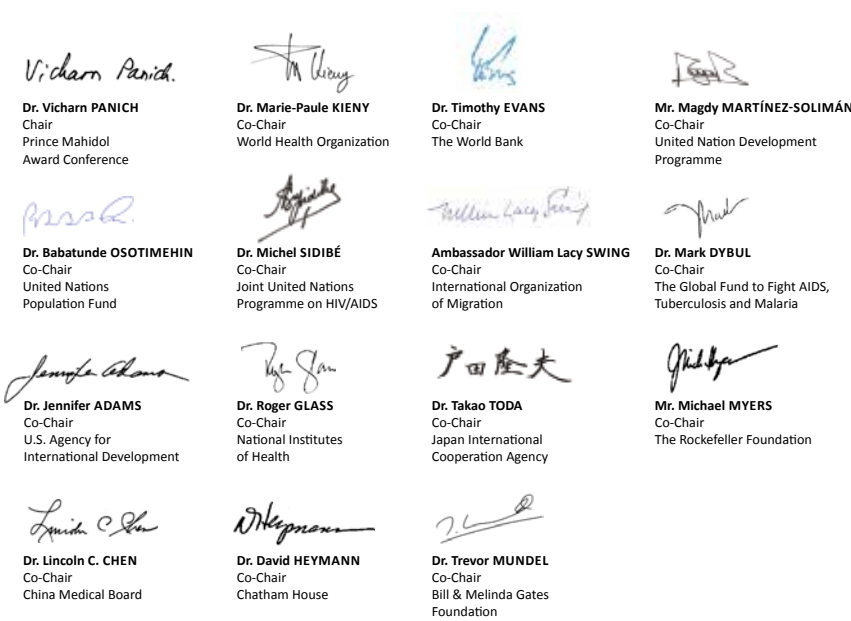 Vicharn Panich.
Dr. Vicharn PANICH
Chair
Prince Mahidol
Award Conference
Kieny
Dr. Marie-Paule KIENY
Co-Chair
World Health Organization
Dr. Timothy EVANS
Co-Chair
The World Bank
Mr. Magdy MARTÍNEZ-SOLIMÁN
Co-Chair
United Nation Development
Programme
Dr. Babatunde OSOTIMEHIN
Co-Chair
United Nations
Population Fund
Dr. Michel SIDIBÉ
Co-Chair
Joint United Nations
Programme on HIV/AIDS
William Lacy Swing
Ambassador William Lacy SWING
Co-Chair
International Organization
of Migration
Dr. Mark DYBUL
Co-Chair
The Global Fund to Fight AIDS,
Tuberculosis and Malaria
Jennifer Adams
Dr. Jennifer ADAMS
Co-Chair
U.S. Agency for
International Development
Dr. Roger GLASS
Co-Chair
National Institutes
of Health
戸田隆夫
Dr. Takao TODA
Co-Chair
Japan International
Cooperation Agency
Mr. Michael MYERS
Co-Chair
The Rockefeller Foundation
Lincoln C Chen
Dr. Lincoln C. CHEN
Co-Chair
China Medical Board
DHeymann
Dr. David HEYMANN
Co-Chair
Chatham House
Dr. Trevor MUNDEL
Co-Chair
Bill & Melinda Gates
Foundation